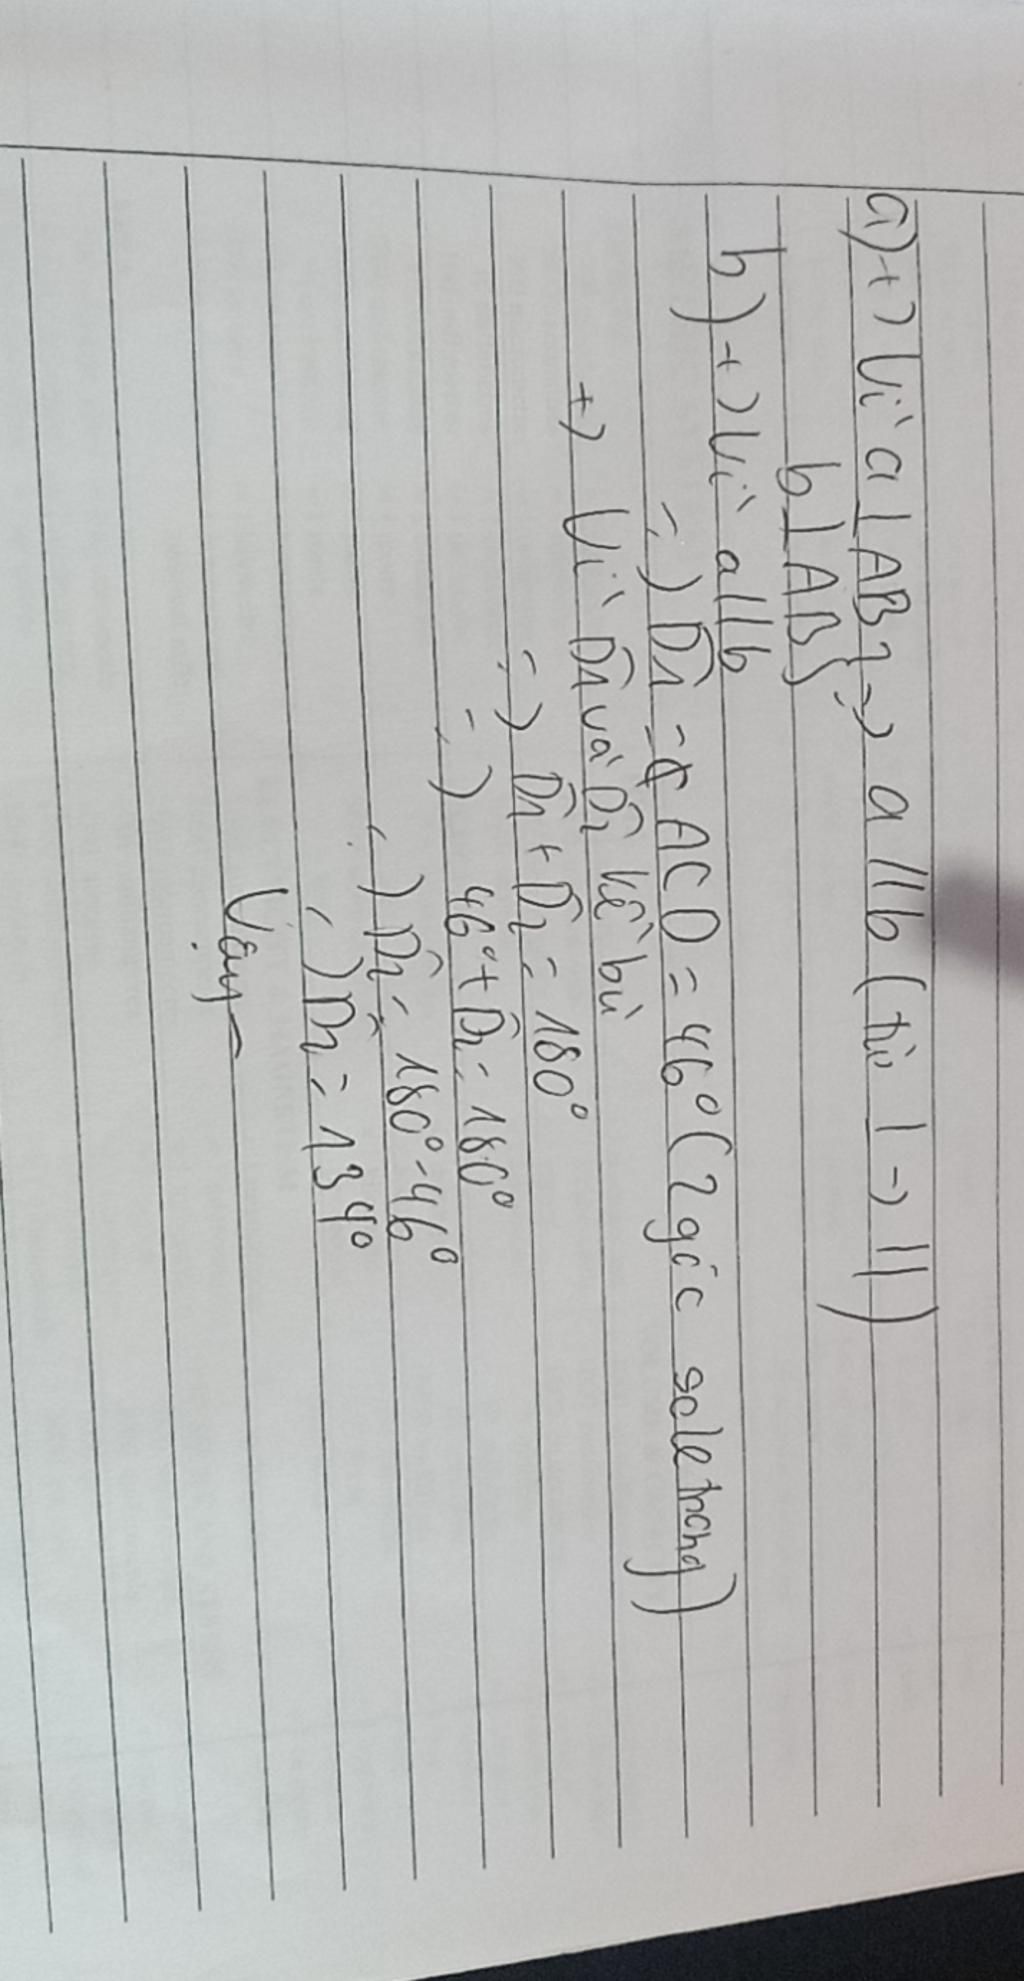 a) +) Vì a ⊥ AB } => a // b (từ ⊥ -> //)
b ⊥ AB }
b) +) Vì a // b
=) D̂1 = ∢ ACD = 46° (2 góc so le trong)
+) Vì D̂1 và D̂2 kề bù
=) D̂1 + D̂2 = 180°
=) 46° + D̂2 = 180°
=) D̂2 = 180° - 46°
=) D̂2 = 134°
Vậy -